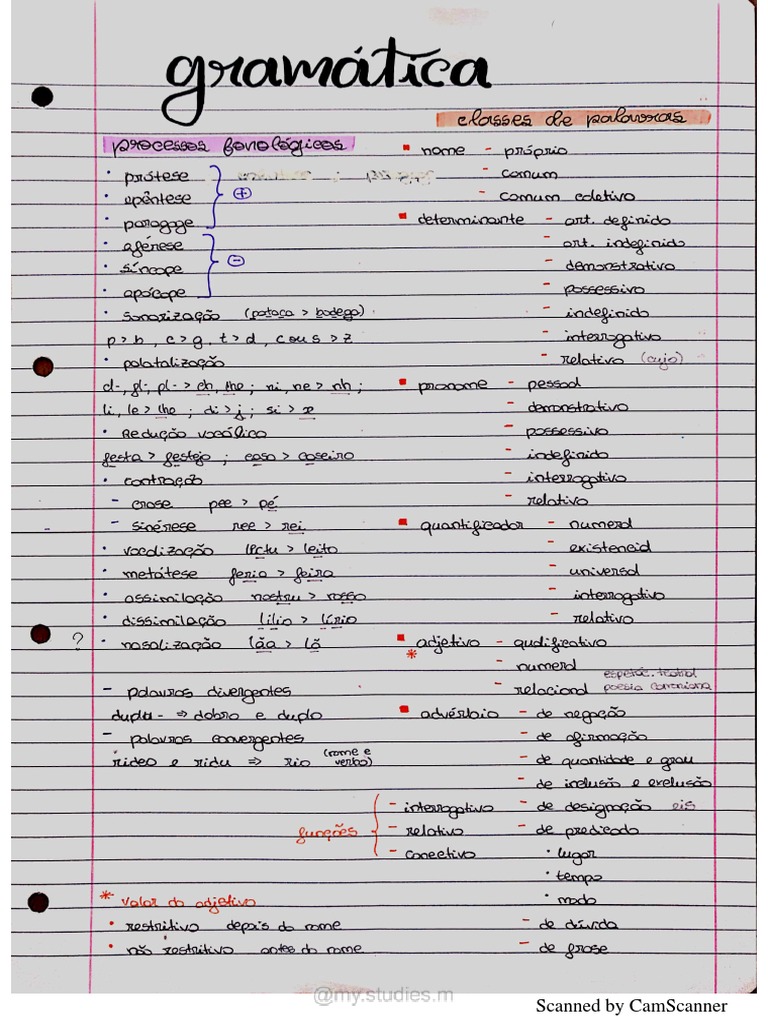 gramática
processos fonológicos
• prótese
• epêntese
• paragoge
+
• aférese
• síncope
• apócope
-
• sonorização (potaca > bodega)
p > b, c > g, t > d, c ou s > z
• palatalização
cl-, fl-, pl- > ch, lhe; ni, ne > nh;
li, le > lhe; di > j; si > x
• Redução vocálica
festa > festejo; casa > caseiro
• contração
- crase pee > pé
- sinérese ree > rei
• vocalização lectu > leito
• metátese feria > feira
• assimilação nostru > nosso
• dissimilação lílio > lírio
? • nasalização lãa > lã
- palavras divergentes
duplu- ⇒ dobro e duplo
- palavras convergentes
rideo e ridu ⇒ rio (nome e verbo)
classes de palavras
▪ nome - próprio
- comum
- comum coletivo
▪ determinante - art. definido
- art. indefinido
- demonstrativo
- possessivo
- indefinido
- interrogativo
- relativo (cujo)
▪ pronome - pessoal
- demonstrativo
- possessivo
- indefinido
- interrogativo
- relativo
▪ quantificador - numeral
- existencial
- universal
- interrogativo
- relativo
▪ adjetivo - qualificativo
*
- numeral
- relacional espetác. teatral
poesia camoniana
▪ advérbio - de negação
- de afirmação
- de quantidade e grau
- de inclusão e exclusão
- de designação eis
- de predicado
• lugar
• tempo
• modo
- de dúvida
- de frase
funções
- interrogativo
- relativo
- conectivo
* valor do adjetivo
• restritivo depois do nome
• não restritivo antes do nome
@my.studies.m
Scanned by CamScanner